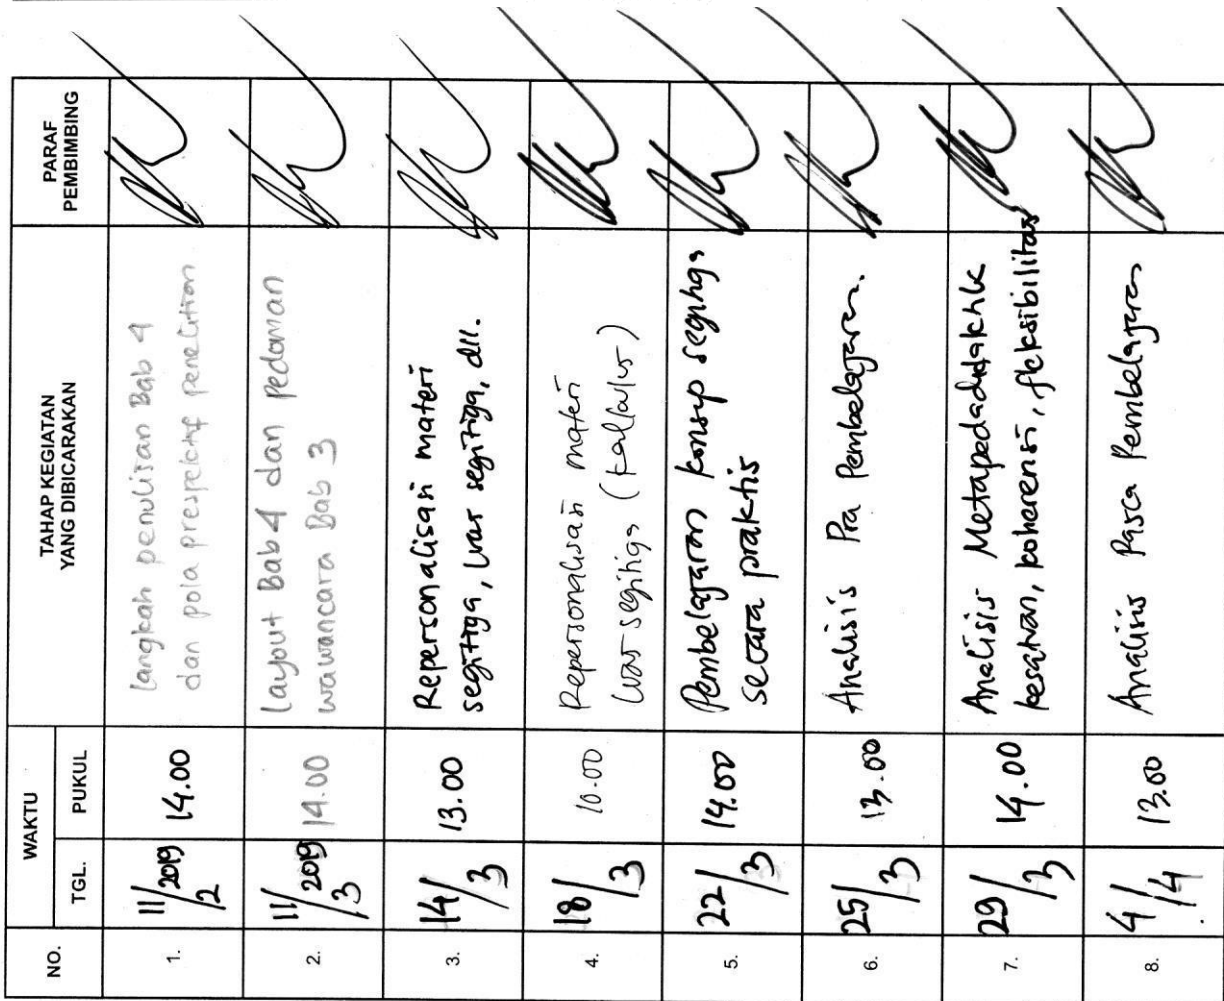 NO.
WAKTU
TGL.
PUKUL
TAHAP KEGIATAN
YANG DIBICARAKAN
PARAF
PEMBIMBING
1.
11/2019/2
14.00
Langkah penulisan Bab 4
dan pola prespektif penelitian
2.
11/2019/3
14.00
Layout Bab 4 dan Pedoman
wawancara Bab 3
3.
14/3
13.00
Repersonalisasi materi
segitiga, luas segitiga, dll.
4.
18/3
10.00
Repersonalisasi materi
luas segitiga (kalkulus)
5.
22/3
14.00
Pembelajaran konsep segitiga
secara praktis
6.
25/3
13.00
Analisis Pra Pembelajaran.
7.
29/3
14.00
Analisis Metapedadidaktik
kesatuan, koherensi, fleksibilitas
8.
4/4
13.00
Analisis Pasca Pembelajaran